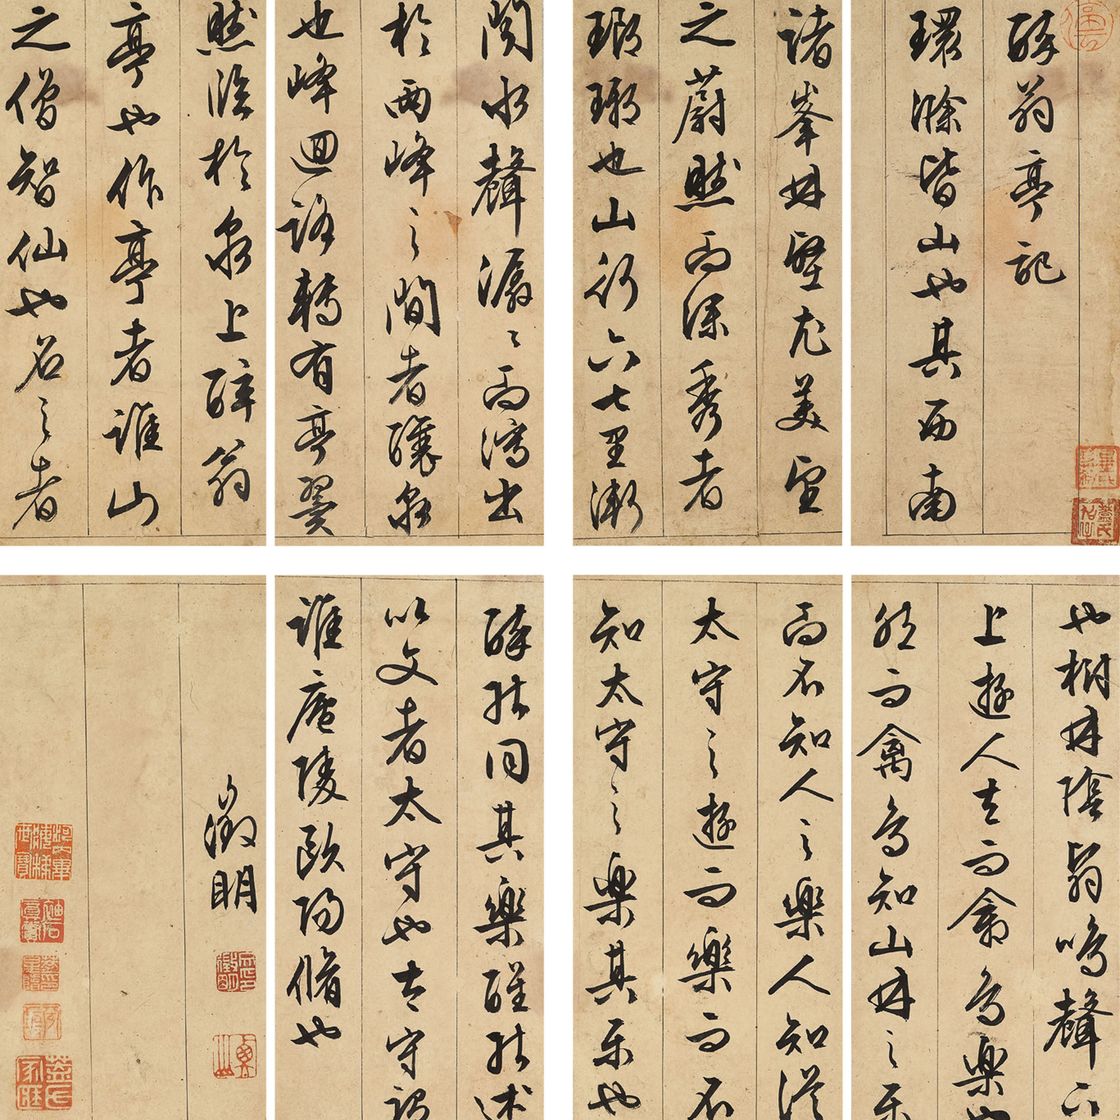 醉翁亭記
環滁皆山也其西南
諸峯林壑尤美望
之蔚然而深秀者
瑯琊也山行六七里漸
聞水聲潺〻而瀉出
於兩峰之間者釀泉
也峰迴路轉有亭翼
然臨於泉上醉翁
亭也作亭者誰山
之僧智仙也名之者
也樹林陰翳鳴聲下
上遊人去而禽鳥樂也
然而禽鳥知山林之樂
而不知人之樂人知從
太守之遊而樂而不
知太守之樂其樂也
醉能同其樂醒能述
以文者太守也太守謂
誰廬陵歐陽脩也
徵明